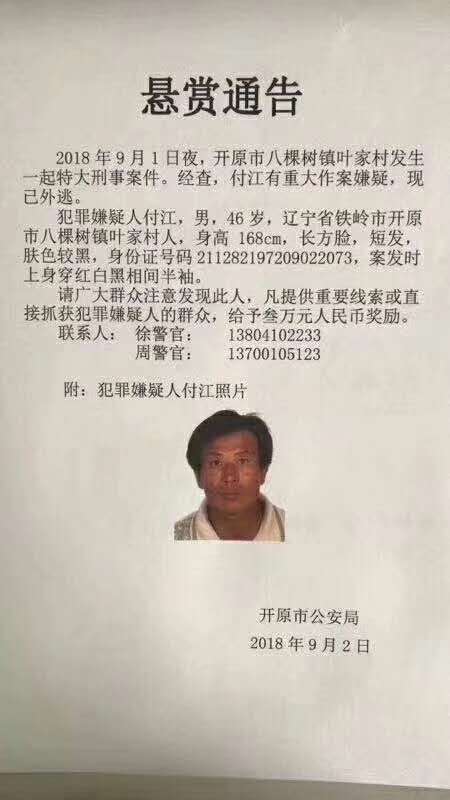 悬赏通告
2018年9月1日夜，开原市八棵树镇叶家村发生
一起特大刑事案件。经查，付江有重大作案嫌疑，现
已外逃。
犯罪嫌疑人付江，男，46岁，辽宁省铁岭市开原
市八棵树镇叶家村人，身高 168cm，长方脸，短发，
肤色较黑，身份证号码 211282197209022073，案发时
上身穿红白黑相间半袖。
请广大群众注意发现此人，凡提供重要线索或直
接抓获犯罪嫌疑人的群众，给予叁万元人民币奖励。
联系人： 徐警官： 13804102233
周警官： 13700105123
附：犯罪嫌疑人付江照片
开原市公安局
2018年9月2日